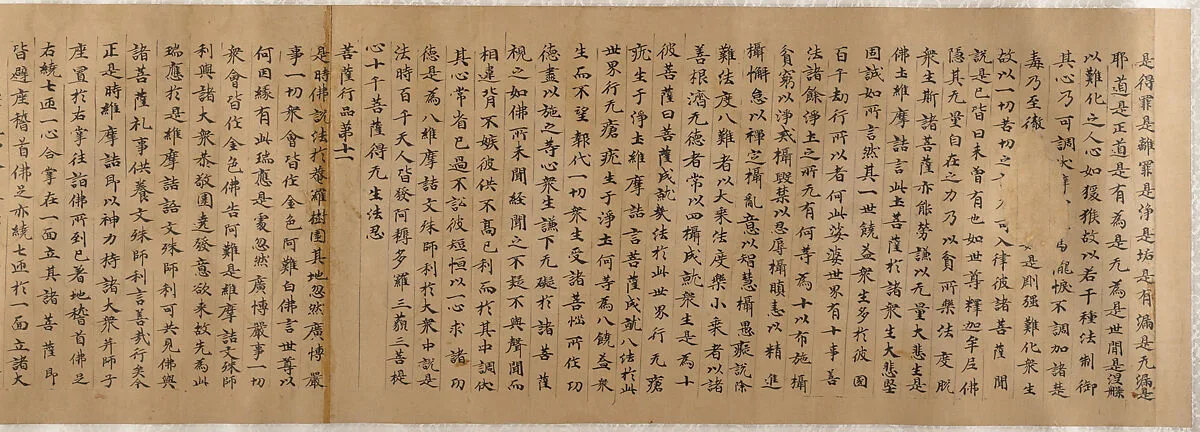 是得罪是離罪是淨是垢是有漏是无漏是
耶道是正道是有為是无為是世間是涅槃
以難化之人心如猨猴故以若干種法制御
其心乃可調伏悷不調加諸楚
毒乃至徹是剛強難化衆生
故以一切苦切之可入律彼諸菩薩聞
說是已皆曰未曾有也如世尊釋迦牟尼佛
隱其无量自在之力乃以貧所樂法度脫
衆生斯諸菩薩亦能勞謙以无量大悲生是
佛土維摩詰言此土菩薩於諸衆生大悲堅
固誠如所言然其一世饒益衆生多於彼國
百千劫行所以者何此娑婆世界有十事善
法諸餘淨土之所无有何等為十以布施攝
貧窮以淨戒攝毀禁以忍辱攝瞋恚以精進
攝懈怠以禪定攝亂意以智慧攝愚癡說除
難法度八難者以大乘法度樂小乘者以諸
善根濟无德者常以四攝成就衆生是為十
彼菩薩曰菩薩成就幾法於此世界行无瘡
疣生于淨土維摩詰言菩薩成就八法於此
世界行无瘡疣生于淨土何等為八饒益衆
生而不望報代一切衆生受諸苦惱所作功
德盡以施之等心衆生謙下无礙於諸菩薩
視之如佛所未聞經聞之不疑不與聲聞而
相違背不嫉彼供不髙己利而於其中調伏
其心常省己過不訟彼短恒以一心求諸功
德是為八維摩詰文殊師利於大衆中說是
法時百千天人皆發阿耨多羅三藐三菩提
心十千菩薩得无生法忍
菩薩行品第十一
是時佛說法於菴羅樹園其地忽然廣博嚴
事一切衆會皆作金色阿難白佛言世尊以
何因緣有此瑞應是處忽然廣博嚴事一切
衆會皆作金色佛告阿難是維摩詰文殊師
利與諸大衆恭敬圍遶發意欲來故先為此
瑞應於是維摩詰語文殊師利可共見佛與
諸菩薩礼事供養文殊師利言善哉行矣今
正是時維摩詰即以神力持諸大衆并師子
座置於右掌往詣佛所到已著地稽首佛足
右繞七匝一心合掌在一面立其諸菩薩即
皆避座稽首佛足亦繞七匝於一面立諸大